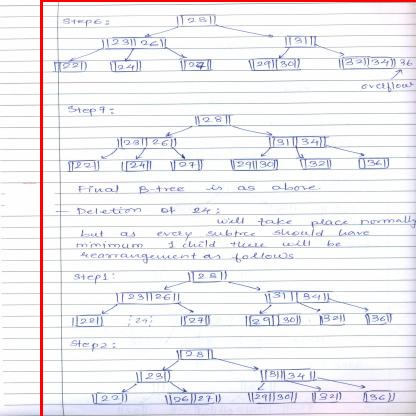 Step6:
||28||
||23||26||
||31||
||22||
||24||
||27||
||29||30||
||32||34|| 36
overflow
Step7:
||28||
||23||26||
||31||34||
||22||
||24||
||27||
||29||30||
||32||
||36||
Final B-tree is as above.
- Deletion of 24:
will take place normally
but as every subtree should have
minimum 1 child there will be
rearrangement as follows
Step1:
||28||
||23||26||
||31||34||
||22||
|24|
||27||
||29||30||
||32||
||36||
Step2:
||28||
||23||
||31||34||
||22||
||26||27||
||29||30||
||32||
||36||